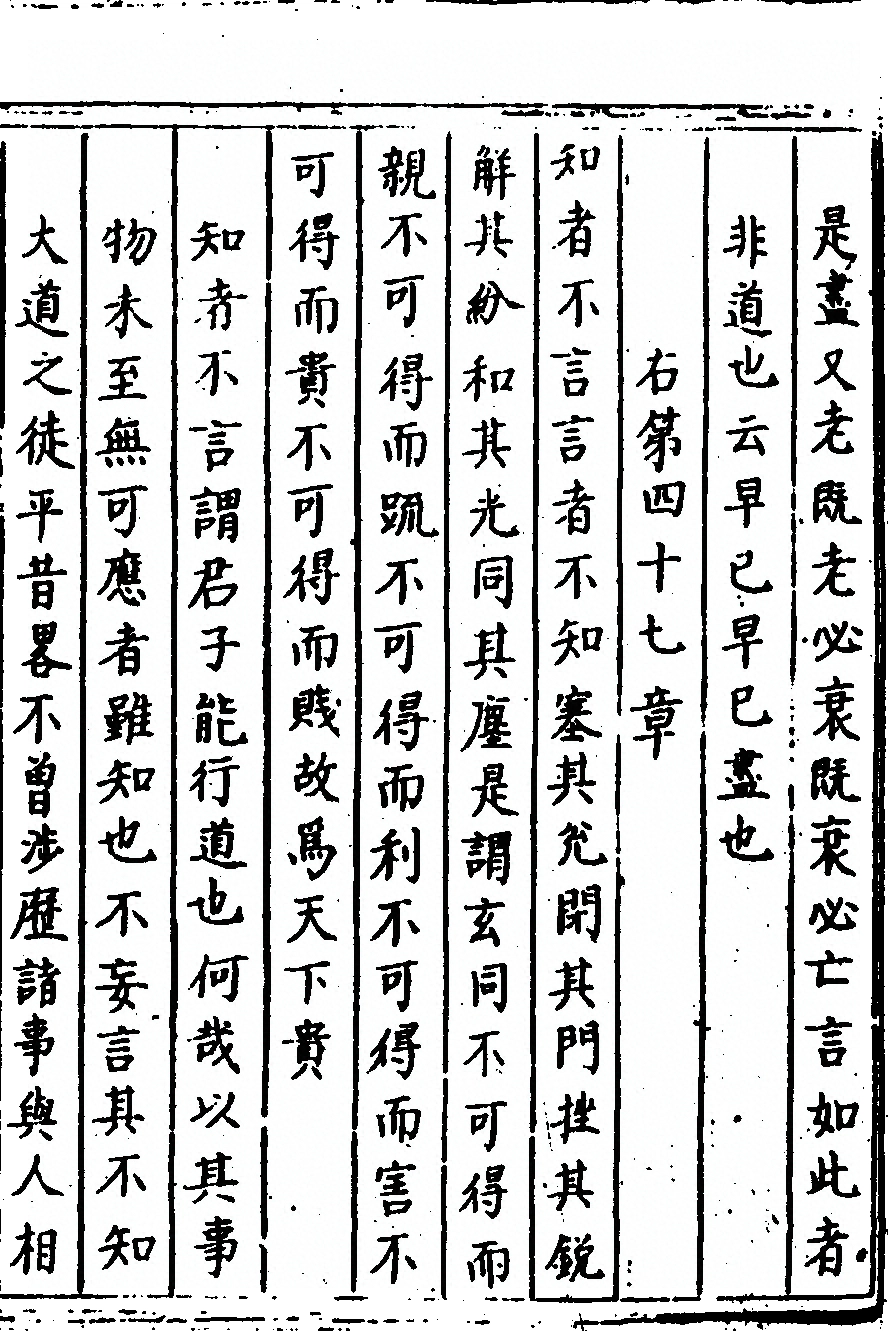 是盡又老既老必衰既衰必亡言如此者
非道也云早已早巳盡也
右第四十七章
知者不言言者不知塞其兊閉其門挫其銳
解其紛和其光同其塵是謂玄同不可得而
親不可得而踈不可得而利不可得而害不
可得而貴不可得而賤故爲天下貴
知者不言謂君子能行道也何哉以其事
物未至無可應者雖知也不妄言其不知
大道之徒平昔畧不曾涉歷諸事與人相